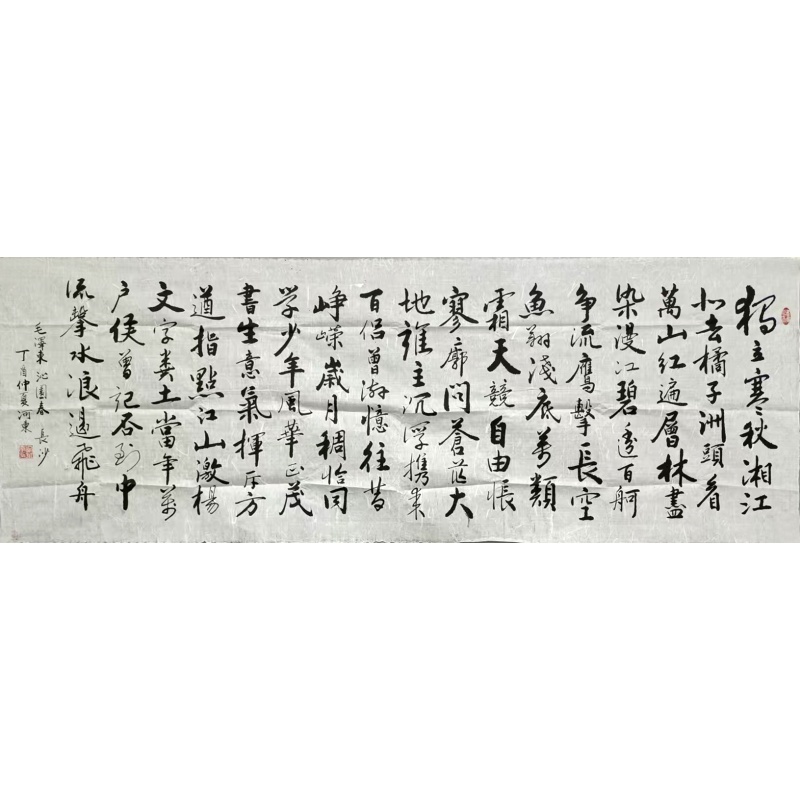 獨立寒秋湘江
北去橘子洲頭看
萬山红遍層林盡
染漫江碧透百舸
争流鷹擊長空
魚翔淺底萬類
霜天競自由悵
寥廓問蒼茫大
地誰主沉浮携來
百侶曾游憶往昔
崢嶸歲月稠恰同
学少年風華正茂
書生意氣揮斥方
遒指點江山激楊
文字粪土當年萬
户侯曾記否到中
流擊水浪遏飛舟
毛澤東 沁園春 長沙
丁酉仲夏河東